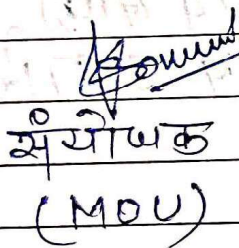 संयोजक
(MOU)